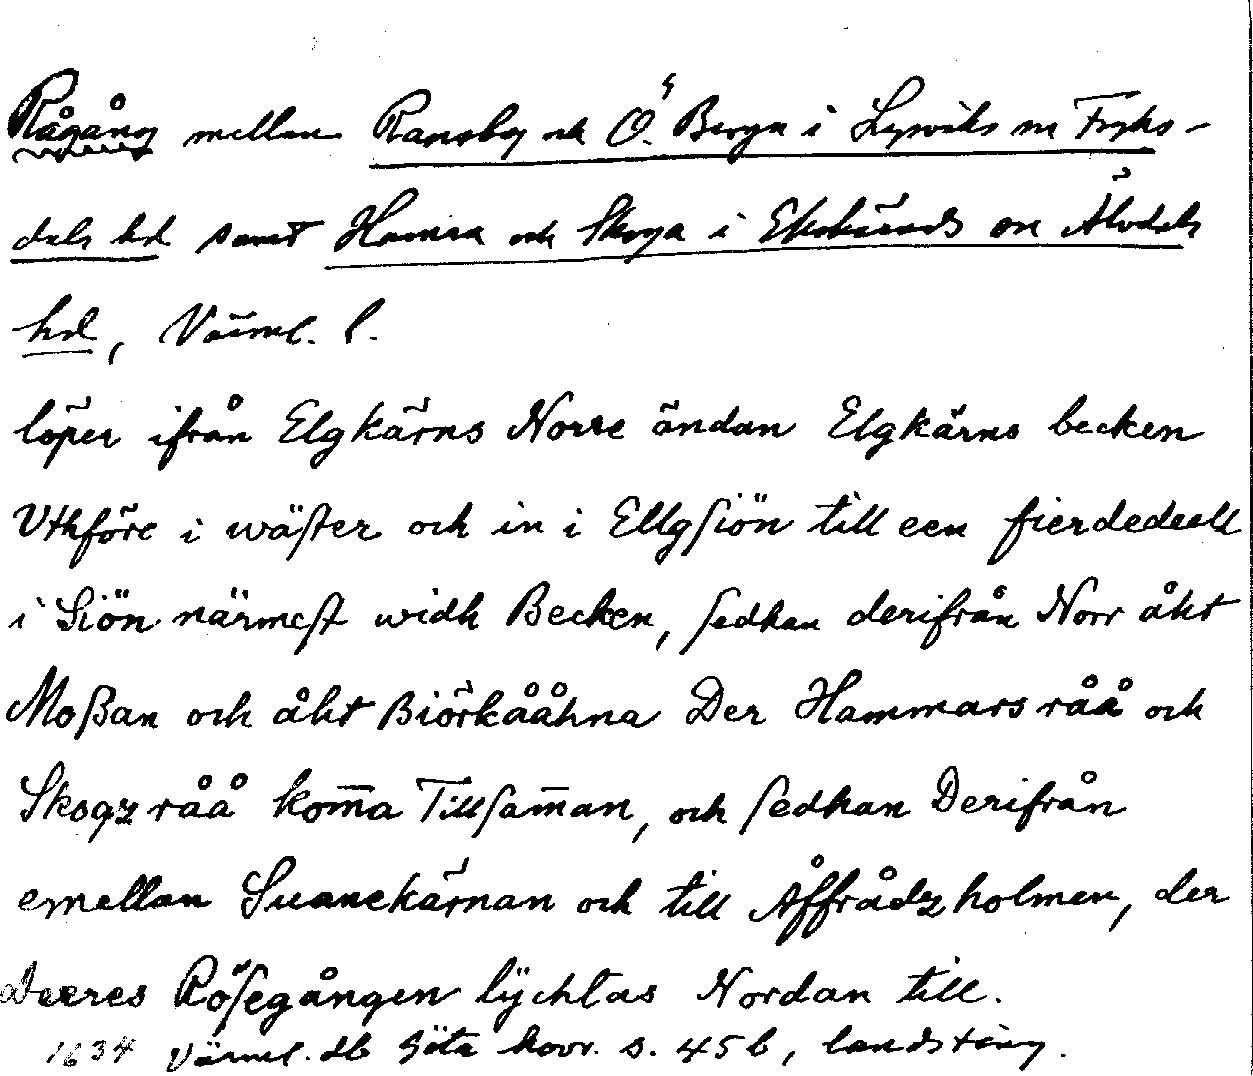 Rågång mellan Ransby och Ö. Berga i Lysviks sn Fryks-
dals hd samt Hamra och Skoga i Ekshärads sn Älvdals
hd, Värml. l.
löper ifrån Elgkärns Norre ändan Elgkärns becken
Uthföre i wäster och in i Ellgsiön till een fierdedeell
i Siön närmest widh Becken, sedhan derifrån Norr åht
Moßan och åht Biörkååhna Der Hammars råå och
Skogz råå kom̅a Tillsam̅an, och sedhan Derifrån
emellan Suanekärnan och till Åffrådz holmen, der
deeres Rösegången lÿchtas Nordan till.
1634 Värml. db Göta hovr. s. 45 b, landsting.